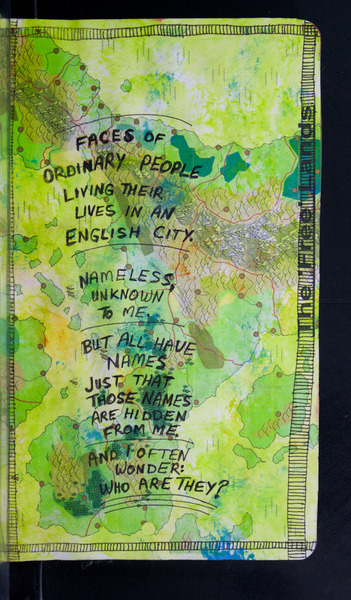 FACES OF
ORDINARY PEOPLE
LIVING THEIR
LIVES IN AN
ENGLISH CITY.
NAMELESS,
UNKNOWN
TO ME.
BUT ALL HAVE
NAMES
JUST THAT
THOSE NAMES
ARE HIDDEN
FROM ME.
AND I OFTEN
WONDER:
WHO ARE THEY?
The Free Lands